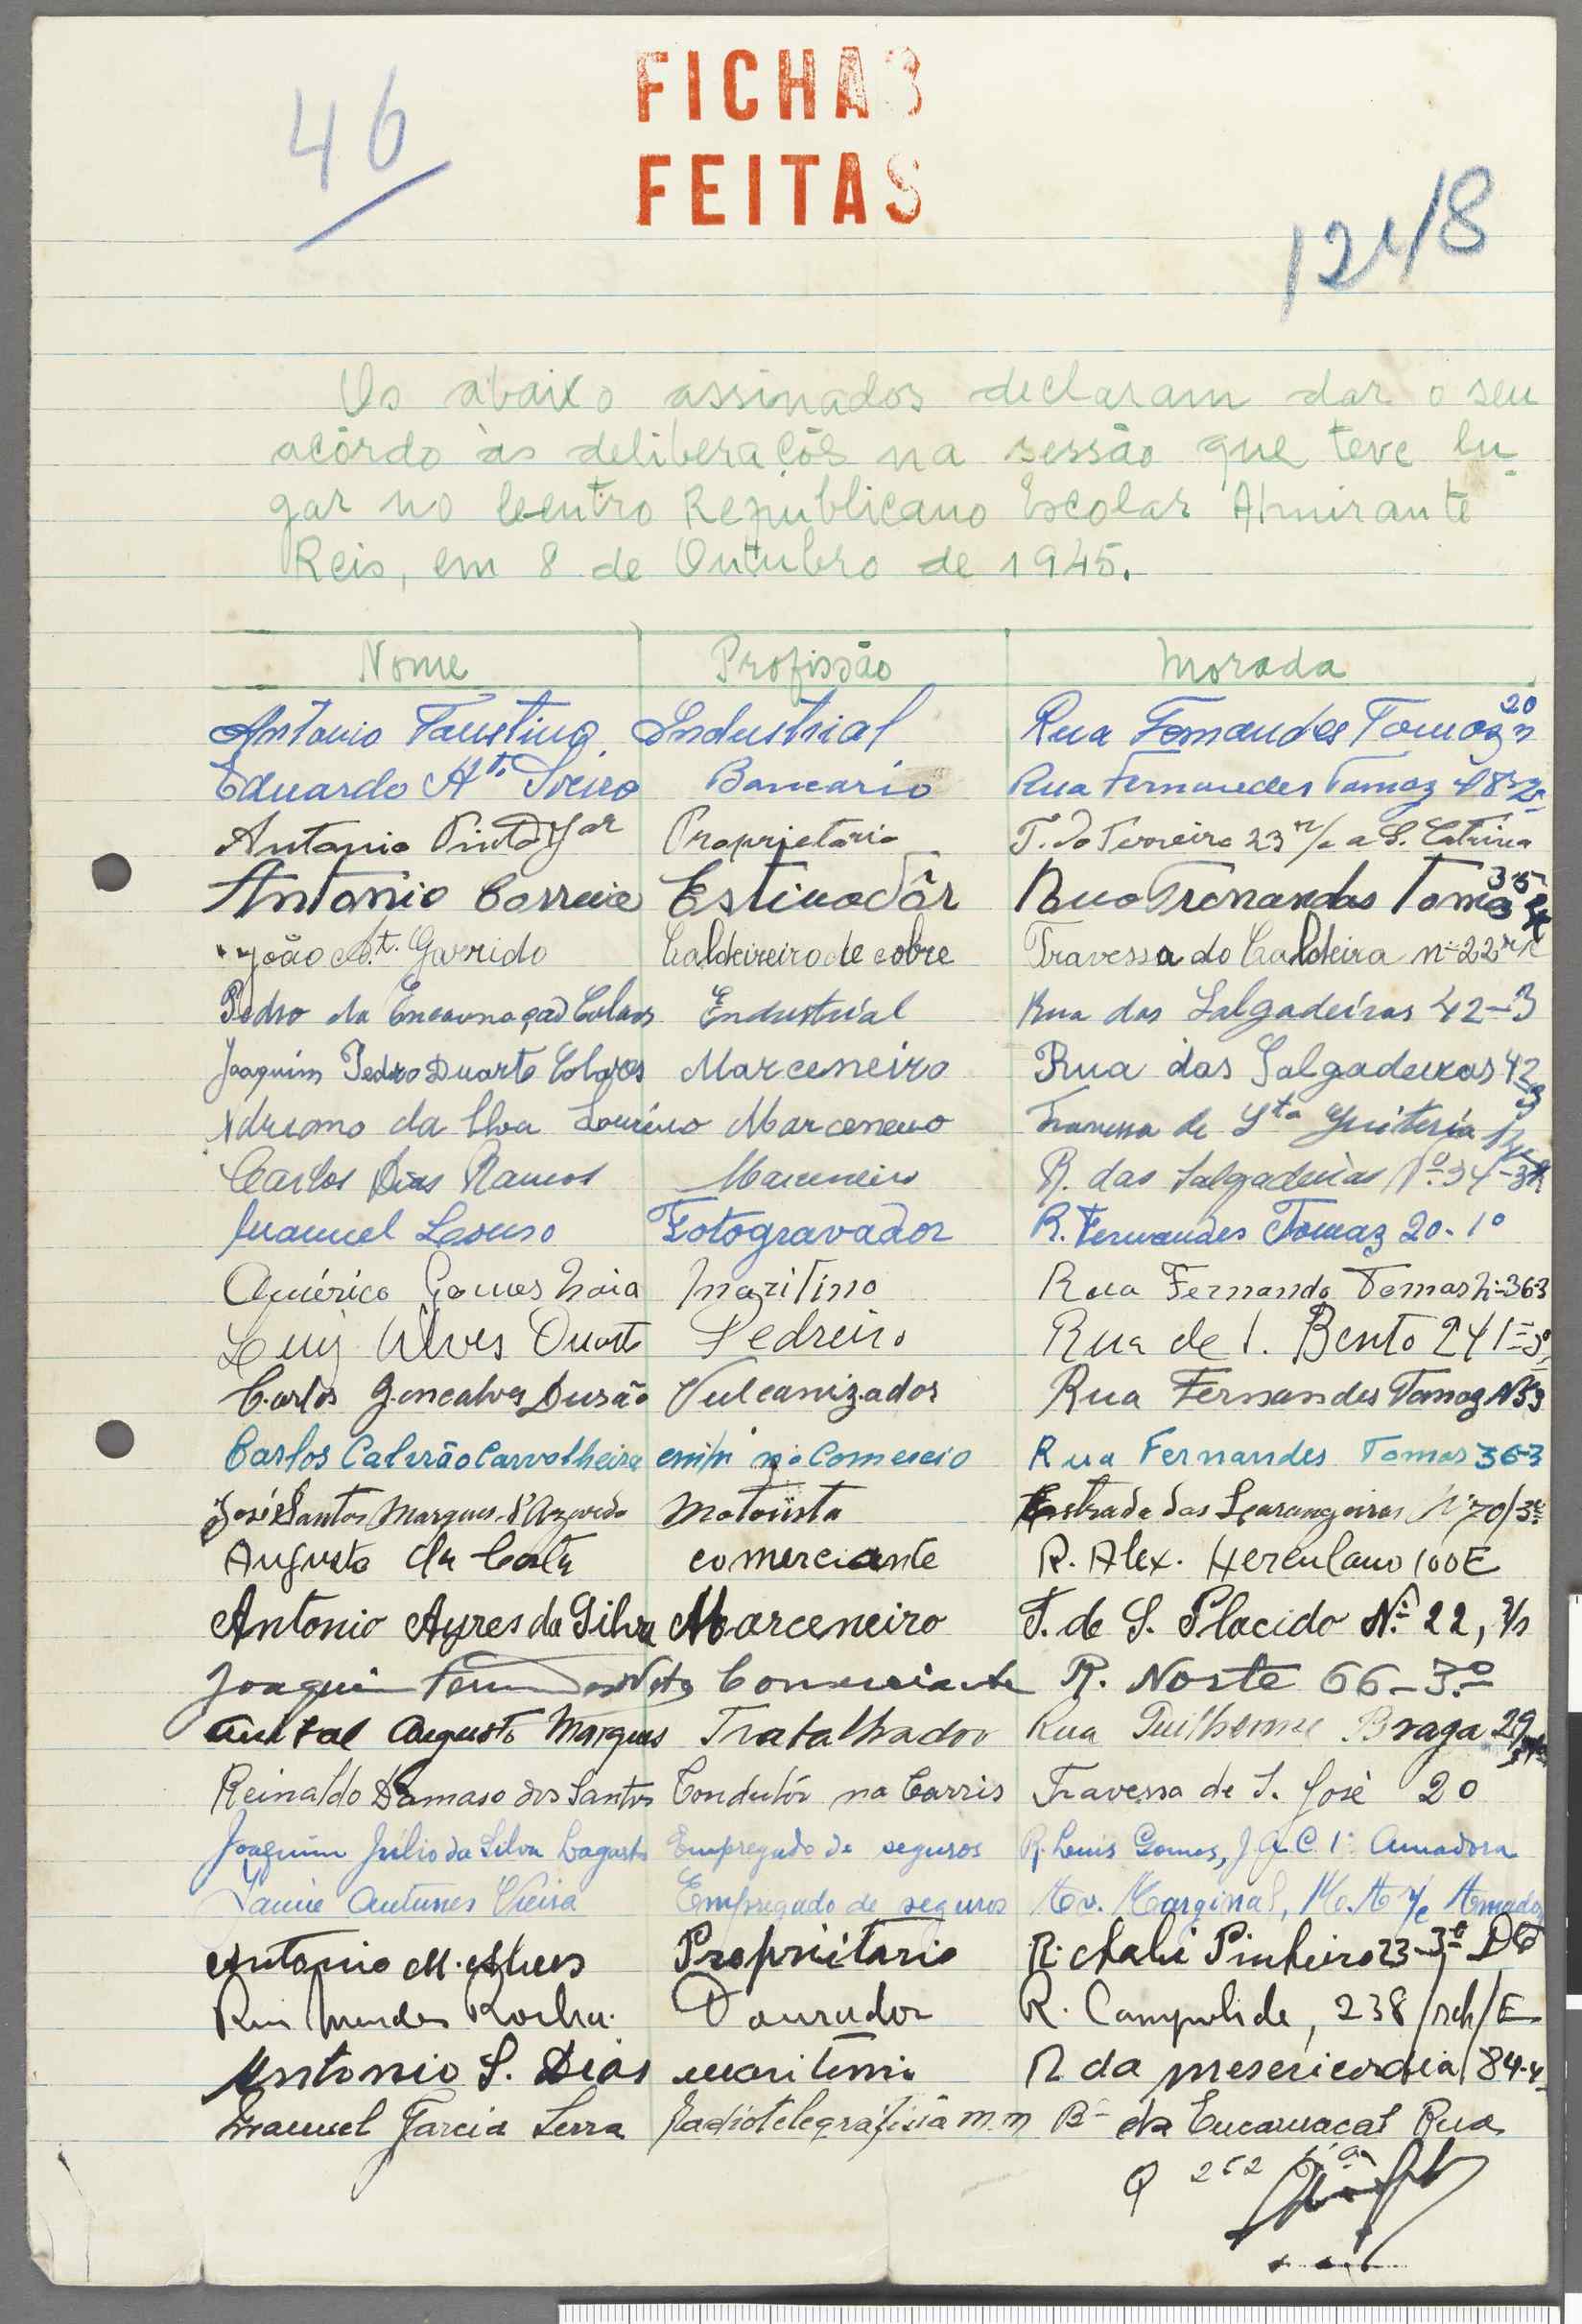 46
FICHAS
FEITAS
1248
Os abaixo assinados declaram dar o seu
acôrdo às deliberações na sessão que teve lu-
gar no Centro Republicano Escolar Almirante
Reis, em 8 de Outubro de 1945.
Nome Profissão Morada
Antonio Faustino Industrial Rua Fernandes Tomaz 20
Eduardo At. Bancario Rua Fernandes Tomaz
Antonio Pinto Proprietario T. do Terreiro 23 r/c a S. Catrina
Antonio Correia Estivadôr Rua Frenandes Toma 35
João At. Garrido Caldeireiro de cobre Travessa do Caldeira nº 22 r/c
Pedro da Encarnação Colares Endustrial Rua das Salgadeiras 42-3
Joaquim Pedro Duarte Colares Marceneiro Rua das Salgadeiras 42 3
Adriano da Silva Marceneiro Travessa de Sta Quiteria
Carlos Dias Ramos Marceneiro R. das Salgadeiras Nº 34-3º
Manuel Fotogravador R. Fernandes Tomaz 20-1º
Américo Gomes Maia Maritimo Rua Fernando Tomas n-36-3
Luiz Alves Duarte Pedreiro Rua de S. Bento 241-3º
Carlos Goncalves Durão Vulcanizador Rua Fernandes Tomaz Nº
Carlos Calvrão Carvalheira no Comercio Rua Fernandes Tomas 36-3
José Santos Marques d'Azevedo Motorista Estrada das Larangeiras Nº 70/3º
Augusto da Costa comerciante R. Alex. Herculano 100E
Antonio Ayres da Silva Marceneiro T. de S. Placido Nº 22,
Joaquim Neto Comerciante R. Norte 66-3º
Augusto Marques Trabalhador Rua Guilherme Braga 29
Reinaldo Damaso dos Santos Condutôr na Carris Travessa de S. José 20
Joaquim Júlio da Silva Empregado de seguros R. Luis Gomes, J.A.C. 1º Amadora
Jaime Antunes Vieira Empregado de seguros Av. Marginal, M.A. r/c Amadora
Antonio M. Alves Proprietario R. Chabi Pinheiro 23-3º Dto
Rui Mendes Rocha Dourador R. Campolide, 238/rch/E
Antonio S. Dias maritimo R da mesericordia 84-4
Manuel Garcia Serra Radiotelegrafista m.m Bº da Encarnação Rua
Q 252